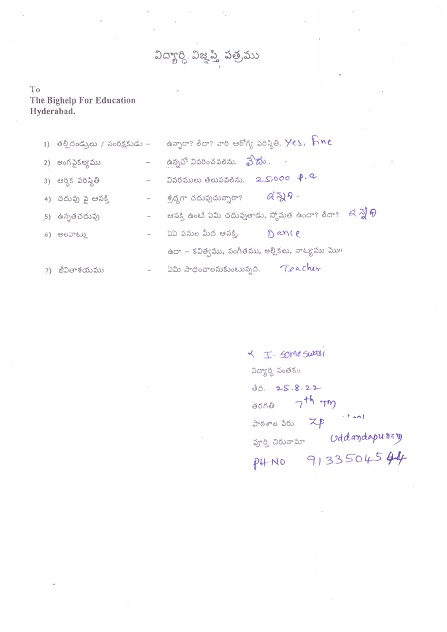 విద్యార్థి విజ్ఞప్తి పత్రము
To
The Bighelp For Education
Hyderabad.
1) తల్లిదండ్రులు / సంరక్షకుడు – ఉన్నారా? లేదా? వారి ఆరోగ్య పరిస్థితి. Yes, Fine
2) అంగవైకల్యము – ఉన్నచో వివరించవలెను. లేదు.
3) ఆర్థిక పరిస్థితి – వివరములు తెలుపవలెను. 25,000 p.a
4) చదువు పై ఆసక్తి – శ్రద్ధగా చదువుచున్నారా?
5) ఉన్నతచదువు – ఆసక్తి ఉంటే ఏమి చదువుతాడు, స్తోమత ఉందా? లేదా?
6) అలవాట్లు – ఏఏ పనుల మీద ఆసక్తి. Dance
ఉదా – కవిత్వము, సంగీతము, అల్లికలు, నాట్యము మొ॥
7) జీవితాశయము – ఏమి సాధించాలనుకుంటున్నది. Teacher
I. Someswari
విద్యార్థి సంతకం
తేది. 25.8.22
తరగతి 7th TM
పాఠశాల పేరు ZP
పూర్తి చిరునామా Uddandapuram
PH NO 9133504544